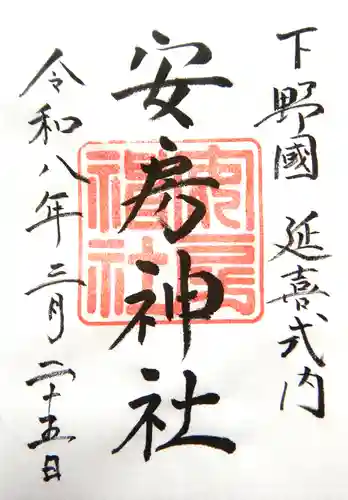 下野國 延喜式内
安房神社
安房神社
令和八年三月二十五日